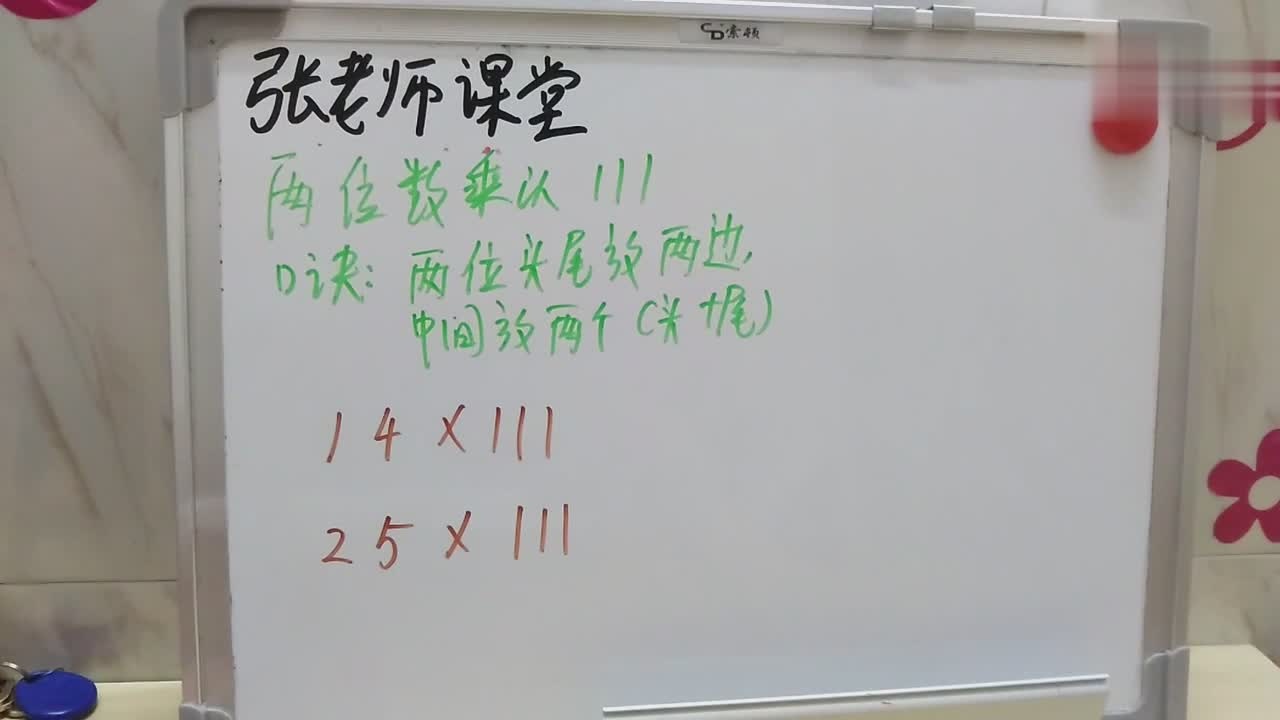 索顿
张老师课堂
两位数乘以111
口诀：两位头尾放两边，
中间放两个（头+尾）
14×111
25×111